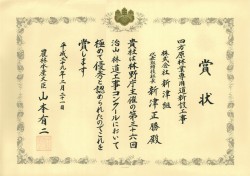 賞状
四方原林業専用道新設工事
株式会社 新津組
代表取締役社長 新津正勝 殿
貴社は林野庁主催の第三十六回
治山・林道工事コンクールにおいて
極めて優秀と認められたのでこれを
賞します
平成二十九年二月二十一日
農林水産大臣 山本有二